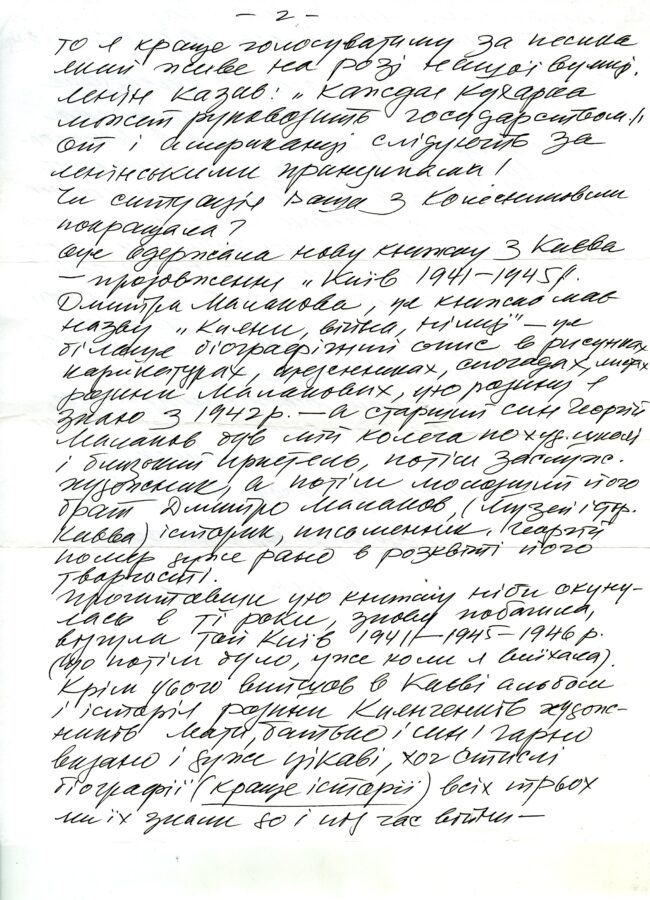 – 2 –
то я краще голосуватиму за песика
який живе на розі нашої вулиці.
Ленін казав: „Каждая кухарка
может руководить государством"
от і американці слідують за
ленінськими принципами!
Чи ситуація Ваша з Колесниковим
покращала?
Оце одержала нову книжку з Києва
— продовження „Київ 1941–1945"
Дмитра Малакова, ця книжка має
назву „Кияни, війна, німці" — це
більше біографічний опис в рисунках
карикатурах, щоденниках, спогадах, листах
родини Малакових, цю родину я
знаю з 1942 р. — а старший син Георгій
Малаков був мій колега по худ. школі
і близький приятель, потім заслуж.
художник, а потім молодший його
брат Дмитро Малаков, (Музей іст.
Києва) історик, письменник. Георгій
помер дуже рано в розквіті його
творчості.
Прочитавши цю книжку ніби окуну-
лась в ті роки, знову побачила,
відчула той Київ 1941–1945–1946 р.
(що потім було, уже коли я виїхала).
Крім усього вийшов в Києві альбом
і історія родини художн-
ників мати, батько і син! гарно
видано і дуже цікаві, хоч стислі
біографії (краще історії) всіх трьох
ми їх знали до і під час війни —